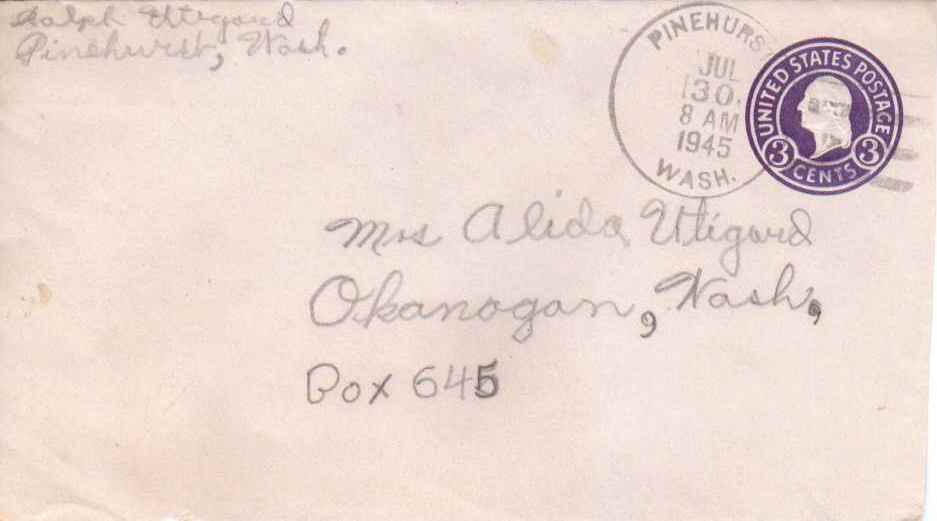 Ralph Utigard
Pinehurst, Wash.
PINEHURS
JUL
30
8 AM
1945
WASH.
UNITED STATES POSTAGE
3 CENTS 3
Mrs Alida Utigard
Okanogan, Wash,
Box 645